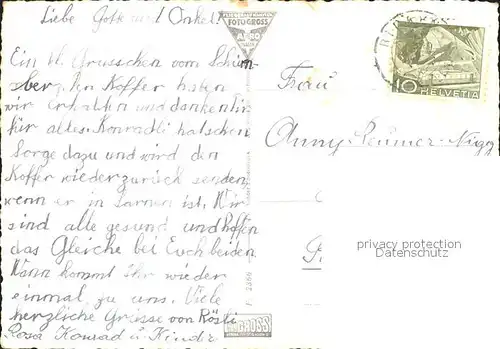 Liebe Gotte und Onkel!
Ein kl. Grusschen vom Schim-
berg, den Koffer haben
wir Erhalten und danken Ihr
für alles. Konradli hat schon
Sorge dazu und wird den
Koffer wieder zurück senden
wenn er in Sarnen ist. Wir
sind alle gesund und hoffen
das Gleiche bei Euch beiden
Wann kommt Ihr wieder
einmal zu uns. Viele
herzliche Grüsse von Rösli
Rosa Konrad u Kinder
FOTO GROSS
F. 2366
10 HELVETIA
Frau
Anny
privacy protection
Datenschutz